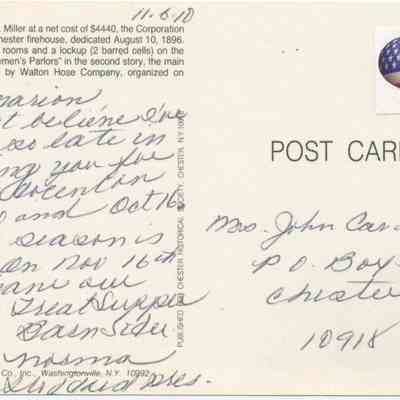 11-6-10
. Miller at a net cost of $4440, the Corporation
hester firehouse, dedicated August 10, 1896.
rooms and a lockup (2 barred cells) on the
emen's Parlors" in the second story, the main
by Walton Hose Company, organized on
Marion
t believe I've
so late in
ing you I've
and Oct 16
Season is
on Nov 16th
are our
Treat Supper
Barnsider
Norma
Co., Inc., Washingtonville, N.Y. 10992
PUBLISHED FOR CHESTER HISTORICAL SOCIETY, CHESTER, N.Y. 109
POST CAR
Mrs. John Car
P O Box
Chester
10918